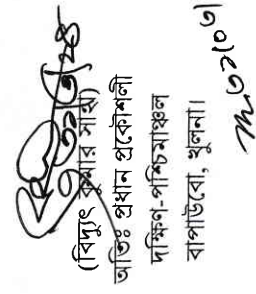 (বিদ্যুৎ কুমার সাহা)
অতিঃ প্রধান প্রকৌশলী
দক্ষিণ-পশ্চিমাঞ্চল
বাপাউবো, খুলনা।